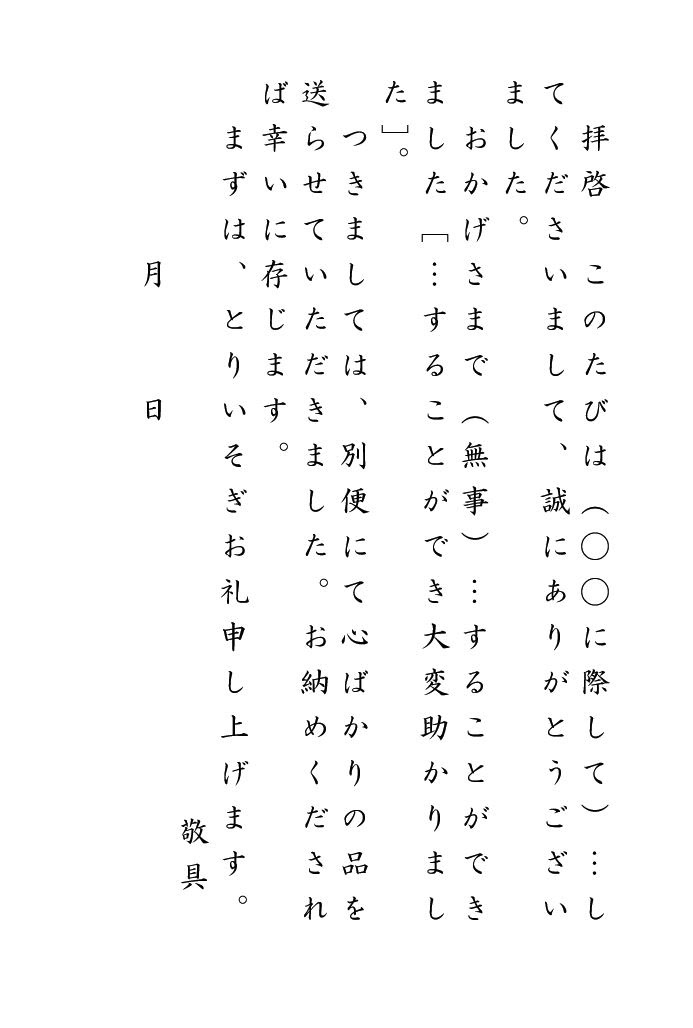 拝啓　このたびは（〇〇に際して）…し
てくださいまして、誠にありがとうござい
ました。
おかげさまで（無事）…することができ
ました［…することができ大変助かりまし
た］。
つきましては、別便にて心ばかりの品を
送らせていただきました。お納めくだされ
ば幸いに存じます。
まずは、とりいそぎお礼申し上げます。
敬具
月　　日